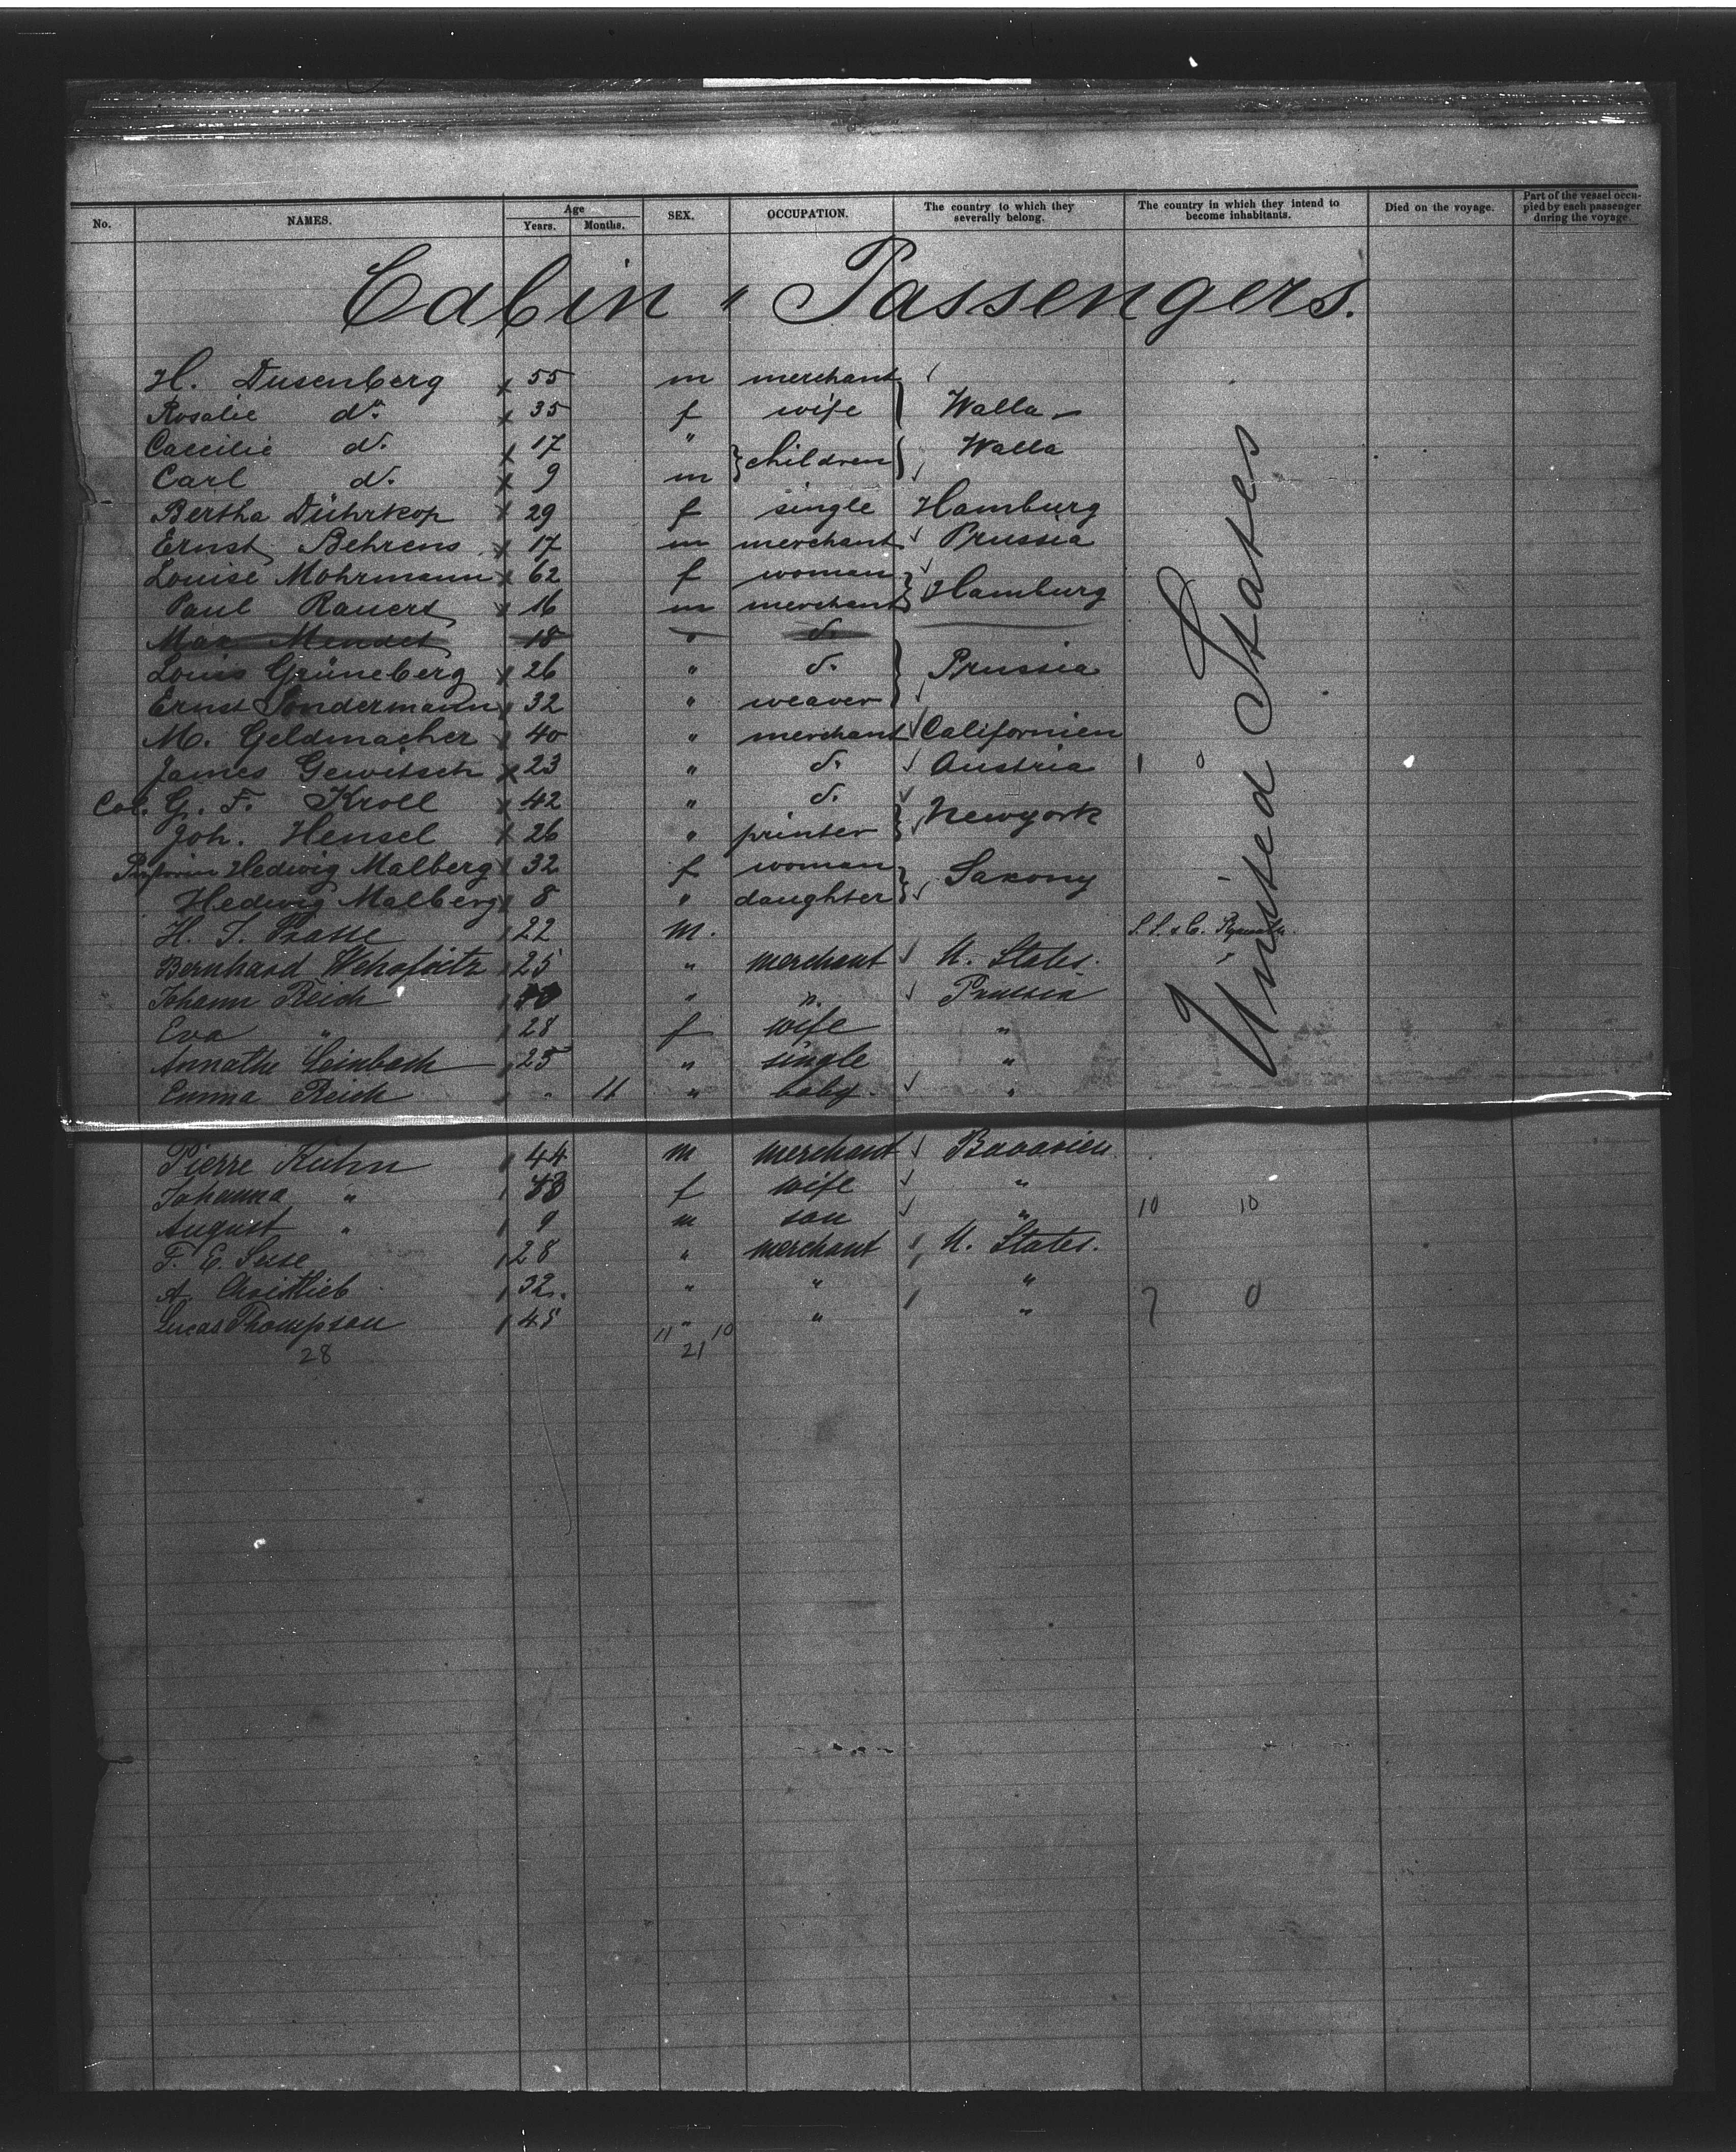 No. NAMES. Age Years. Months. SEX. OCCUPATION. The country to which they severally belong. The country in which they intend to become inhabitants. Died on the voyage. Part of the vessel occupied by each passenger during the voyage.
Cabin " Passengers.
H. Dusenberg x 55 m merchant
Rosalie do. x 35 f wife Walla -
Caecilie d. x 17 " children Walla
Carl d. x 9 m
Bertha Dührkop x 29 f single Hamburg
Ernst Behrens x 17 m merchant Prussia
Louise Mohrmann x 62 f woman Hamburg
Paul Rauert x 16 m merchant
Max Mendel 18 " d.
Louis Grüneberg x 26 " d. Prussia
Ernst Sondermann x 32 " weaver
M. Geldmacher x 40 " merchant Californien
James Gewitsch x 23 " d. Austria 1 0
Col. G. F. Kroll x 42 " d. Newyork
Joh. Hensel x 26 " printer
Hedwig Malberg 32 f woman Saxony
Hedwig Malberg 8 " daughter
H. J. Prasse 22 m.
Bernhard 25 " merchant U. States.
Johann Reich " " Prussia
Eva " 28 f wife "
Annathe Leinbach 25 " single "
Emma Reich " 11 " baby. "
United States
Pierre Kuhn 44 m merchant Bavarien
Johanna " f wife "
August " 9 m son " 10 10
F. E. Suse 28 " merchant U. States.
A. Christlieb 32. " " " 7 0
Lucas Thompson 45 " " "
11 10
28 21